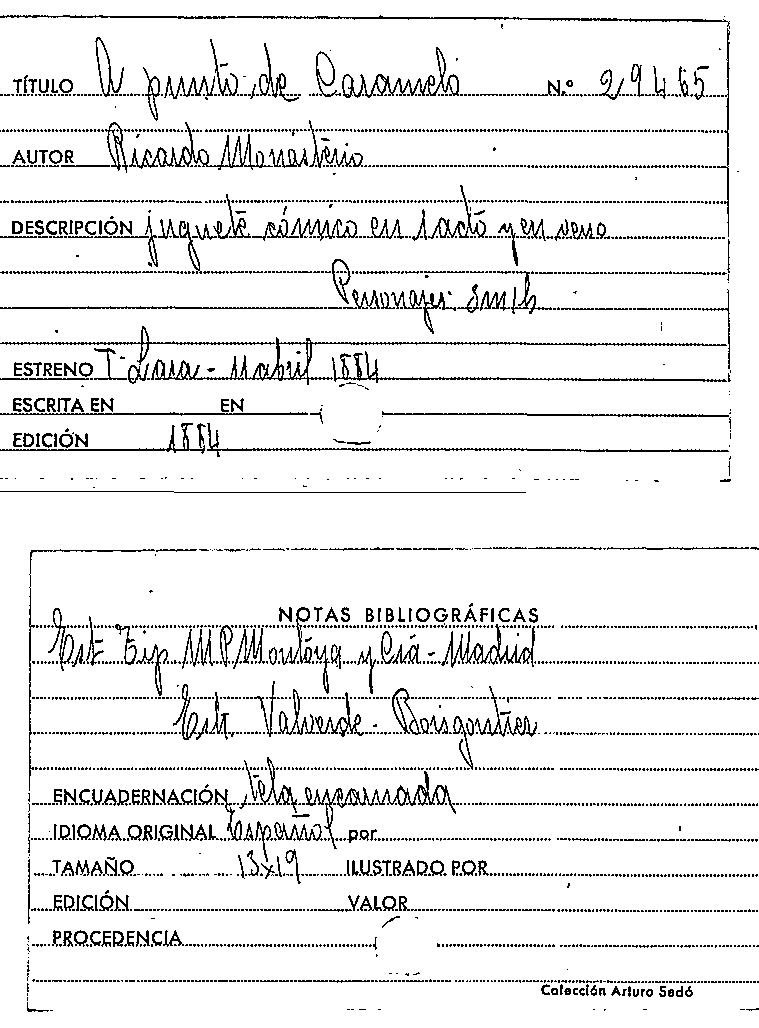 TÍTULO A punto de Caramelo N.º 29465
AUTOR Ricardo Monasterio
DESCRIPCIÓN juguete cómico en 1 acto y en verso
Personajes: 3m 1h
ESTRENO T. Lara - Madrid 1884
ESCRITA EN EN
EDICIÓN 1884
NOTAS BIBLIOGRÁFICAS
Est. Tip. M P Montoya y Cía - Madrid
Enk. Valverde - Boisgontier
ENCUADERNACIÓN tela encarnada
IDIOMA ORIGINAL Español por
TAMAÑO 13x19 ILUSTRADO POR
EDICIÓN VALOR
PROCEDENCIA
Colección Arturo Sedó